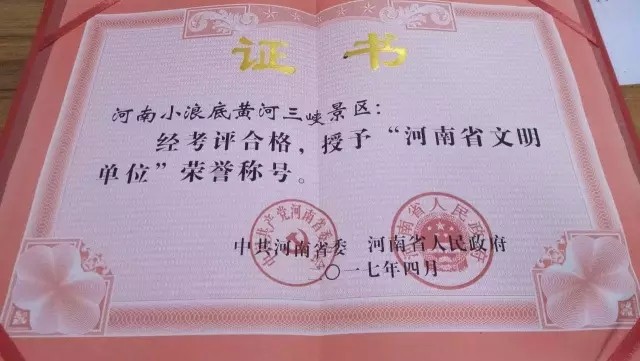 证书
河南小浪底黄河三峡景区：
经考评合格，授予“河南省文明
单位”荣誉称号。
中共河南省委 河南省人民政府
二〇一七年四月
中国共产党河南省委员会
河南省人民政府